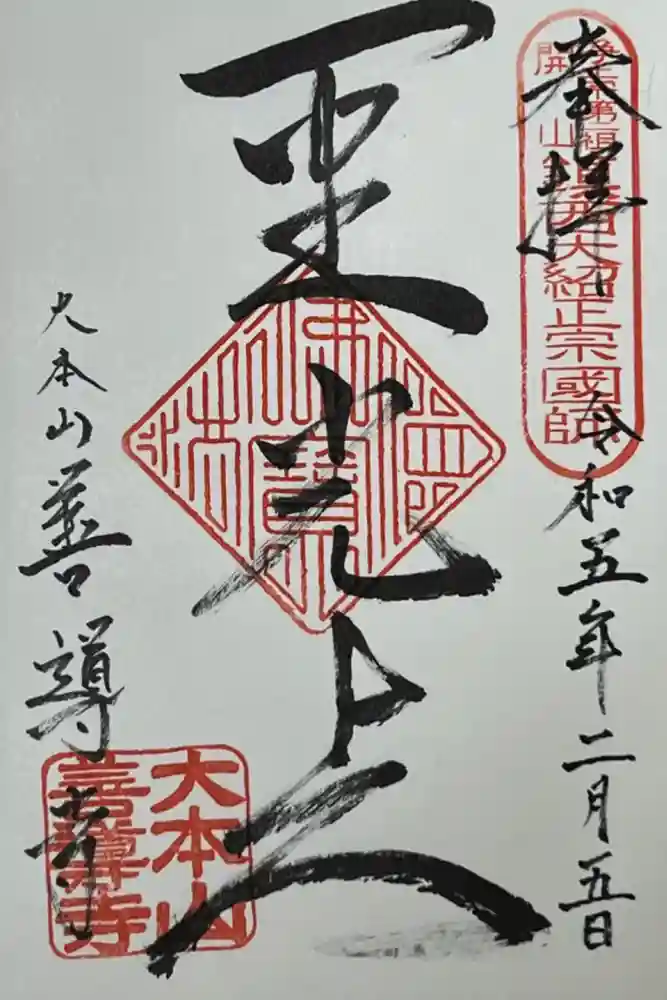 奉拝
令和五年二月五日
浄土宗第二祖
開山
鎮西大紹正宗國師
聖光上人
佛法僧寶
大本山善導寺
大本山
善導寺